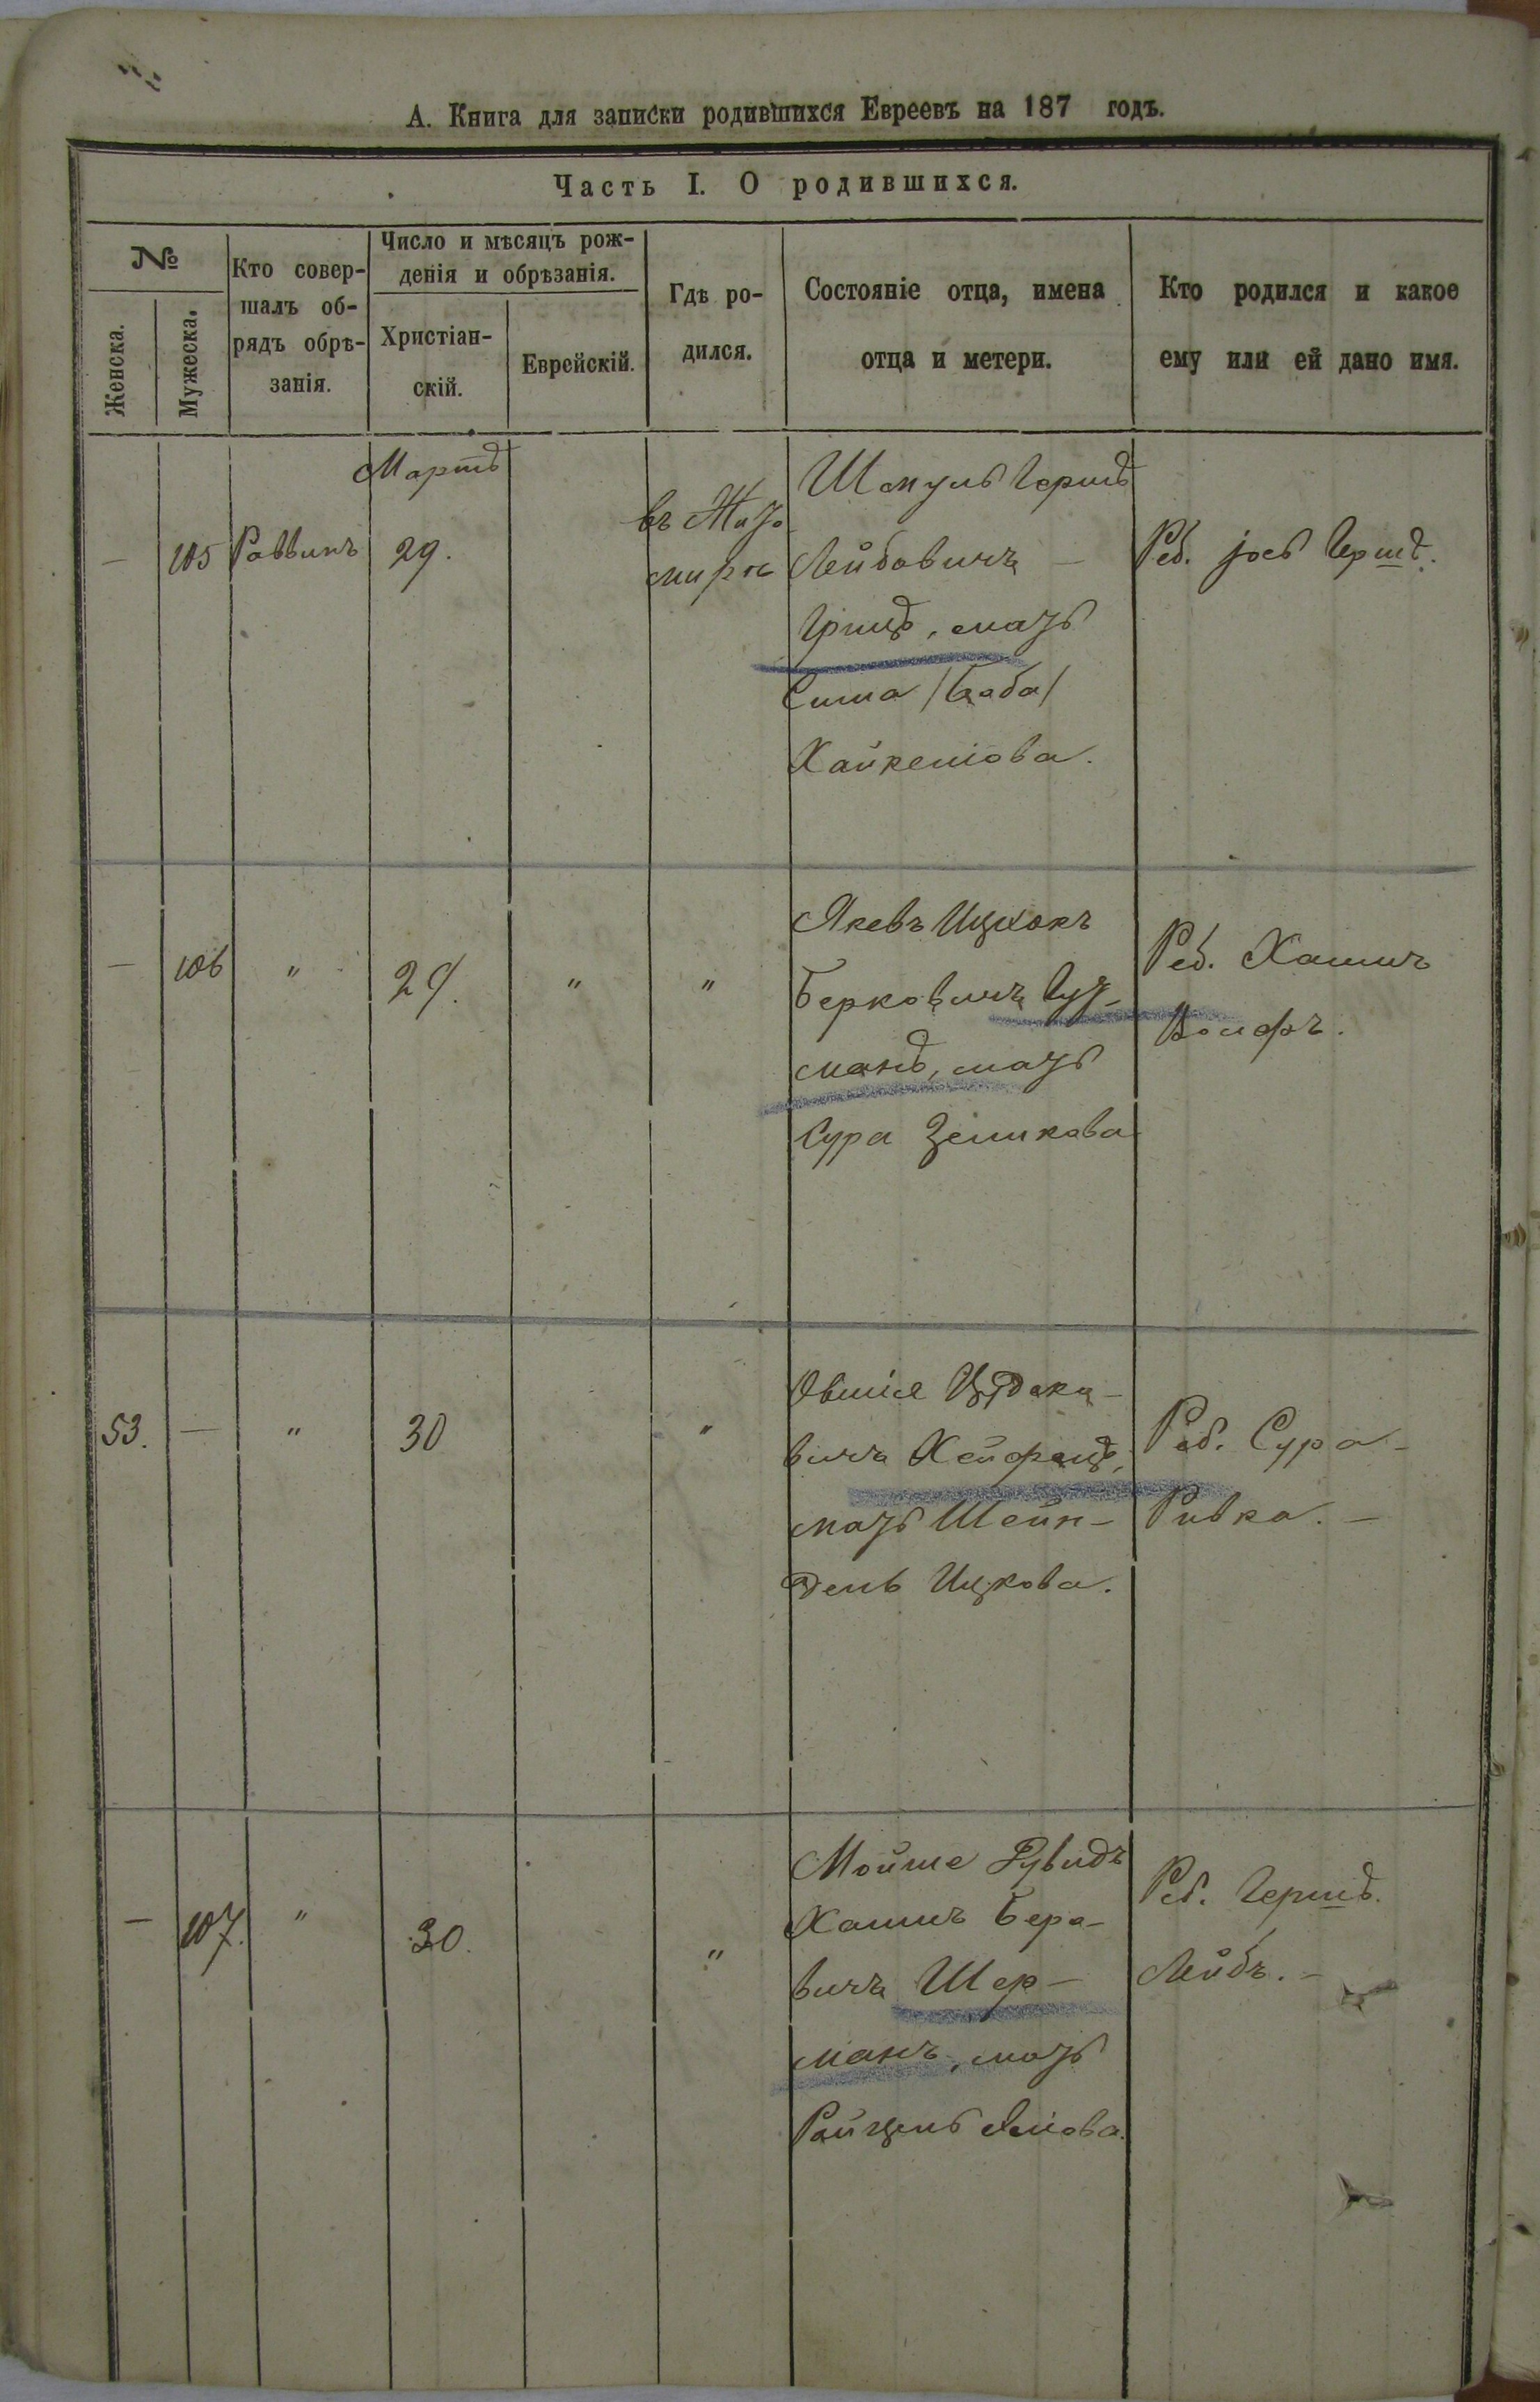 А. Книга для записки родившихся Евреевъ на 187 годъ.
Часть I. О родившихся.
№
Женска.
Мужеска.
Кто совер-
шалъ об-
рядъ обрѣ-
занія.
Число и мѣсяцъ рож-
денія и обрѣзанія.
Христіан-
скій.
Еврейскій.
Гдѣ ро-
дился.
Состояніе отца, имена
отца и метери.
Кто родился и какое
ему или ей дано имя.
—
105
Раввинъ
Мартъ
29.
въ Жито
мирѣ
Шмуль Гершъ
Лейбовичъ —
мать
Сима /Баба/
Реб. Јось Гершъ.
—
106
"
29.
"
"
Якевъ Ицхокъ
Берковичъ Гуз-
манъ, мать
Сура Зеликова
Реб. Хаимъ
Вольфъ.
53.
—
"
30
"
Овшіе
вичъ
мать Шейн-
дель Ицкова.
Реб. Сура-
Ривка. —
—
107.
"
30.
"
Мойше Рувинъ
Хаимъ Беро-
вичъ Шер-
манъ, мать
Реб. Гершъ.
Лейбъ. —